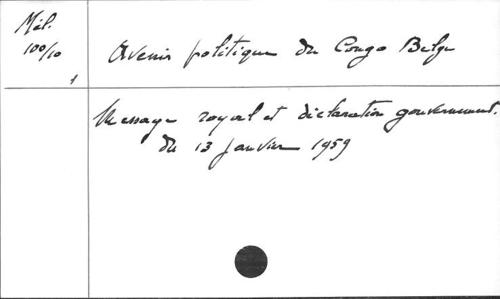 Mél.
100/10
1
Avenir politique du Congo Belge
Message royal et déclaration gouvernement.
du 13 janvier 1959